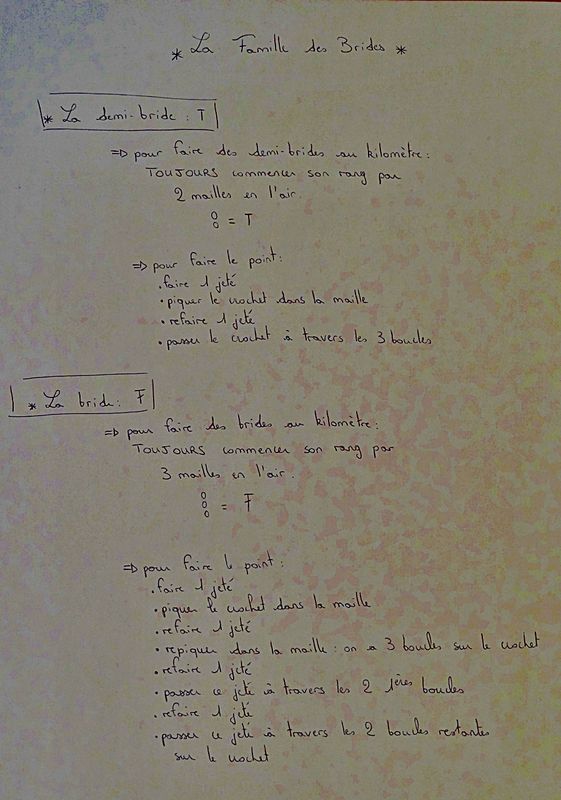 * La Famille des Brides *
* La demi-bride : T
=> pour faire des demi-brides au kilomètre :
TOUJOURS commencer son rang par
2 mailles en l'air.
0
0 = T
=> pour faire le point :
. faire 1 jeté
. piquer le crochet dans la maille
. refaire 1 jeté
. passer le crochet à travers les 3 boucles
* La bride : Ŧ
=> pour faire des brides au kilomètre :
TOUJOURS commencer son rang par
3 mailles en l'air.
0
0
0 = Ŧ
=> pour faire le point :
. faire 1 jeté
. piquer le crochet dans la maille
. refaire 1 jeté
. repiquer dans la maille : on a 3 boucles sur le crochet
. refaire 1 jeté
. passer ce jeté à travers les 2 1ères boucles
. refaire 1 jeté
. passer ce jeté à travers les 2 boucles restantes
sur le crochet